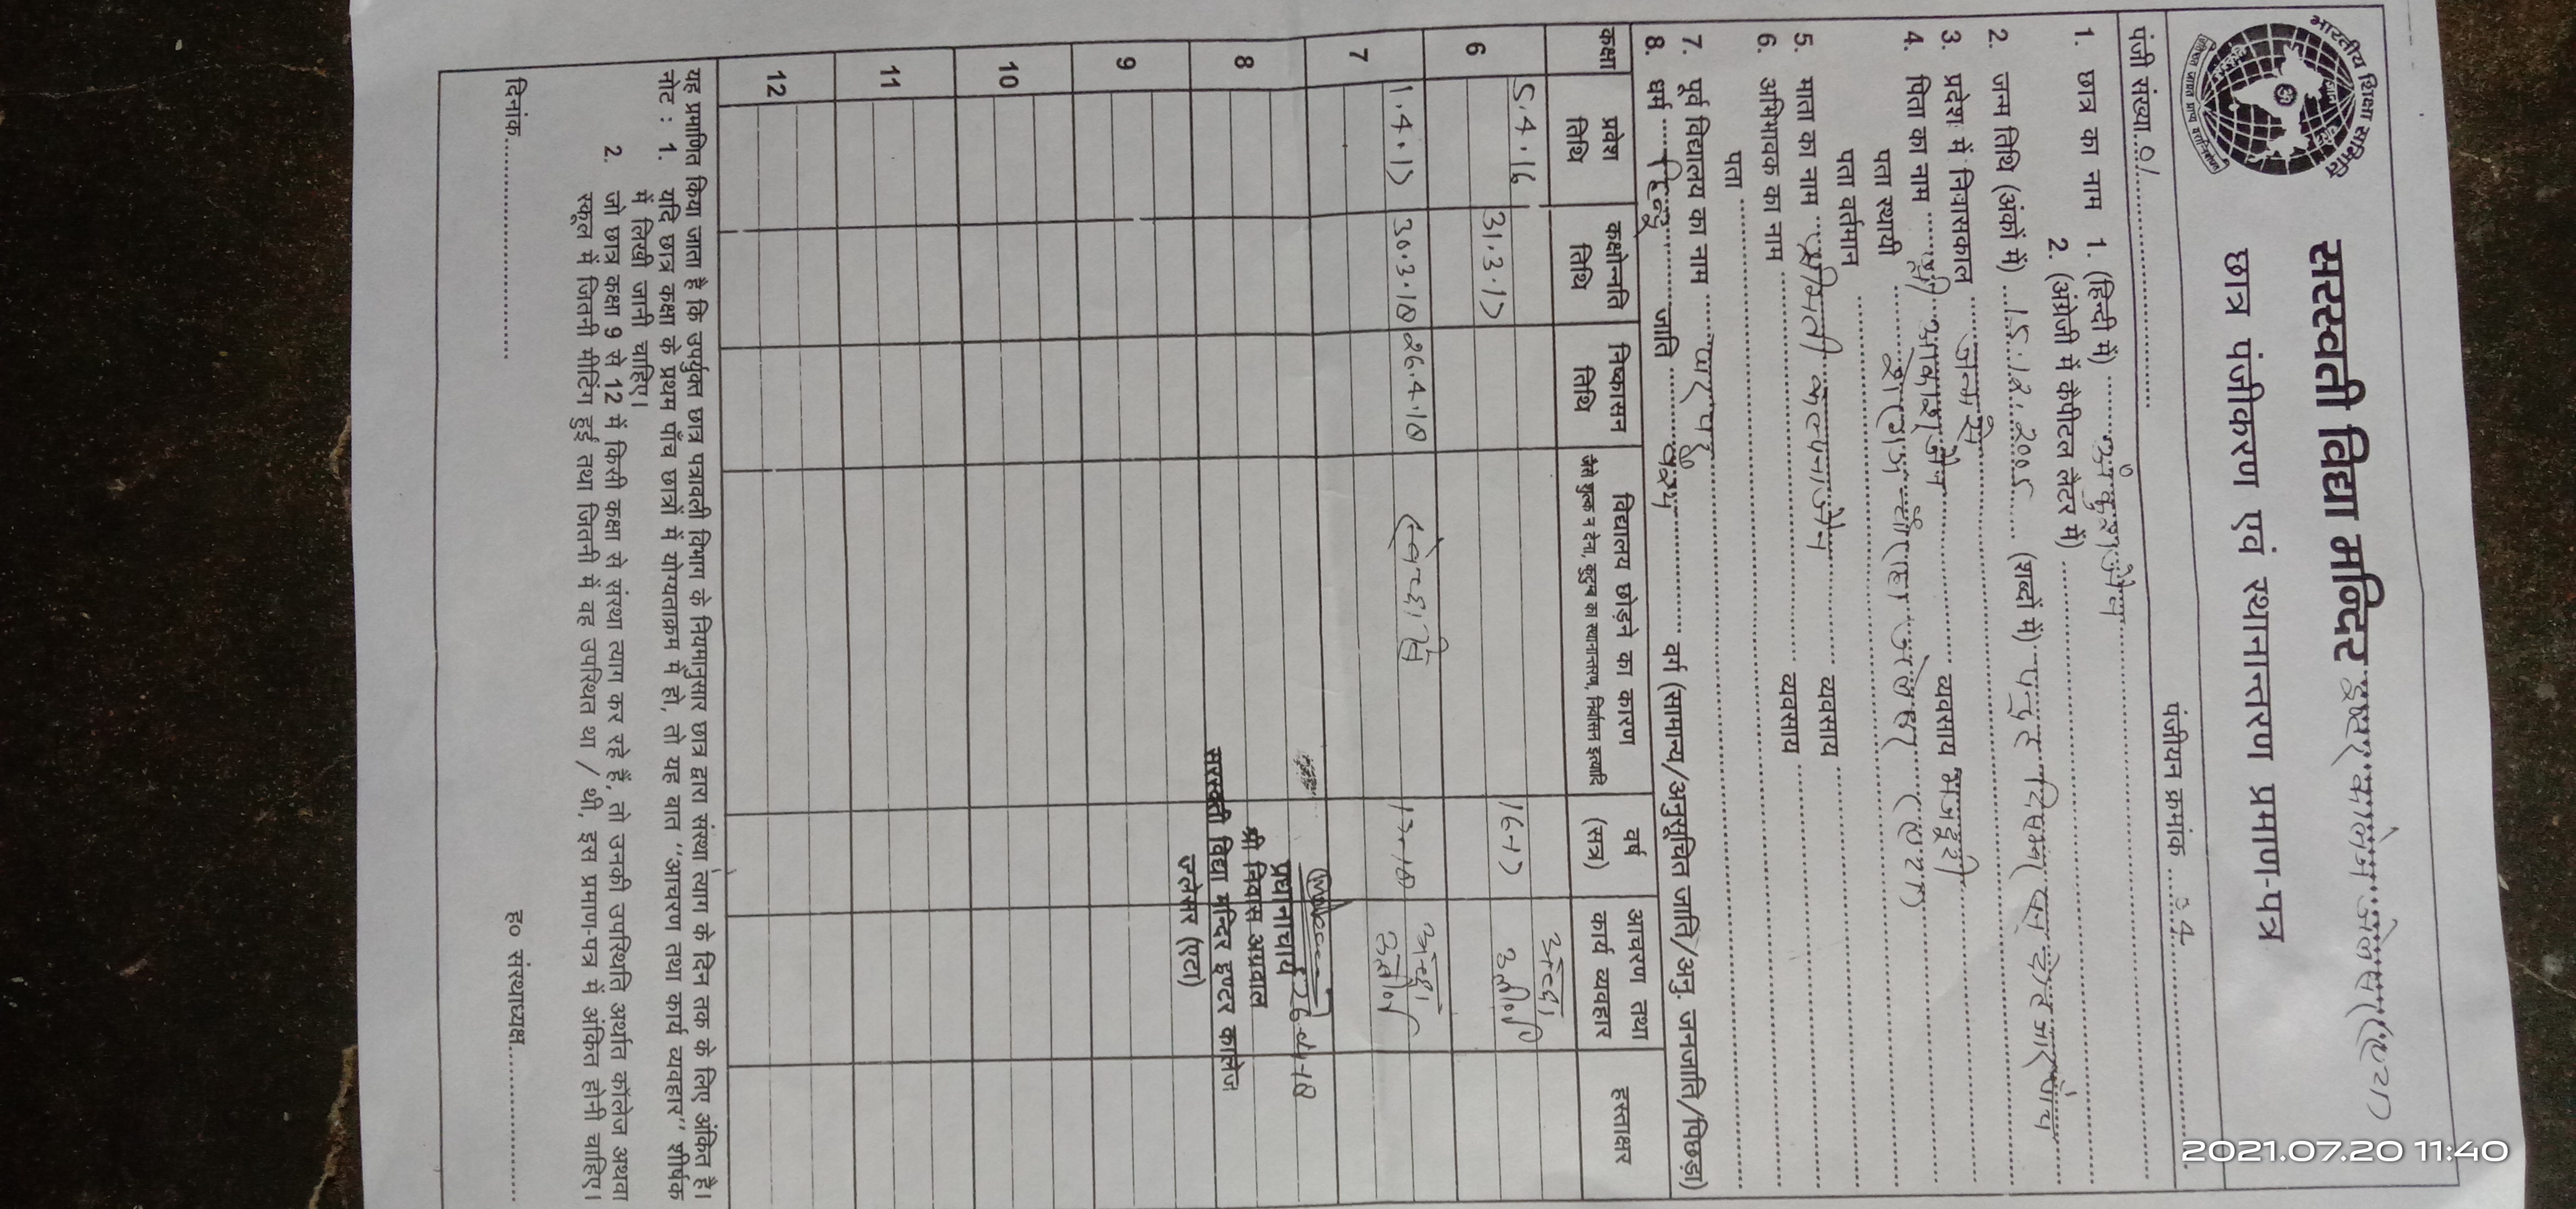 भारतीय शिक्षा समिति
सरस्वती विद्या मन्दिर इण्टर कॉलेज जलेसर (एटा)
छात्र पंजीकरण एवं स्थानान्तरण प्रमाण-पत्र
पंजी संख्या 01 पंजीयन क्रमांक
1. छात्र का नाम 1. (हिन्दी में) अंकुश जैन
2. (अंग्रेजी में केपीटल लेटर में)
2. जन्म तिथि (अंकों में) 15.12.2005 (शब्दों में) पन्द्रह दिसम्बर सन् दो हजार पाँच
3. प्रदेश में निवासकाल जन्म से
4. पिता का नाम श्री आकाश जैन व्यवसाय मजदूरी
पता स्थायी जलेसर (एटा)
पता वर्तमान
5. माता का नाम श्रीमती कल्पना जैन व्यवसाय
6. अभिभावक का नाम व्यवसाय
पता
7. पूर्व विद्यालय का नाम घर पढ़
8. धर्म हिन्दू जाति वैश्य वर्ग (सामान्य/अनुसूचित जाति/अनु. जनजाति/पिछड़ा)
कक्षा प्रवेश तिथि कक्षोन्नति तिथि निष्कासन तिथि विद्यालय छोड़ने का कारण जैसे शुल्क न देना, कुटुम्ब का स्थानान्तरण, निर्वासन इत्यादि वर्ष (सत्र) आचरण तथा कार्य व्यवहार हस्ताक्षर
6 5.4.16 31.3.17 16-17 अच्छा उत्तीर्ण
7 1.4.17 30.3.18 26.4.18 स्वेच्छा से 17-18 अच्छा उत्तीर्ण
26-4-18
प्रधानाचार्य
8 श्री निवास अग्रवाल
सरस्वती विद्या मन्दिर इण्टर कालेज
जलेसर (एटा)
9
10
11
12
यह प्रमाणित किया जाता है कि उपर्युक्त छात्र पत्रावली विभाग के नियमानुसार छात्र द्वारा संस्था त्याग के दिन तक के लिए अंकित है।
नोट : 1. यदि छात्र कक्षा के प्रथम पाँच छात्रों में योग्यताक्रम में हो, तो यह बात "आचरण तथा कार्य व्यवहार" शीर्षक
में लिखी जानी चाहिए।
2. जो छात्र कक्षा 9 से 12 में किसी कक्षा से संस्था त्याग कर रहे हैं, तो उनकी उपस्थिति अर्थात कॉलेज अथवा
स्कूल में जितनी मीटिंग हुई तथा जितनी में वह उपस्थित था / थी, इस प्रमाण-पत्र में अंकित होनी चाहिए।
दिनांक ह0 संस्थाध्यक्ष
2021.07.20 11:40